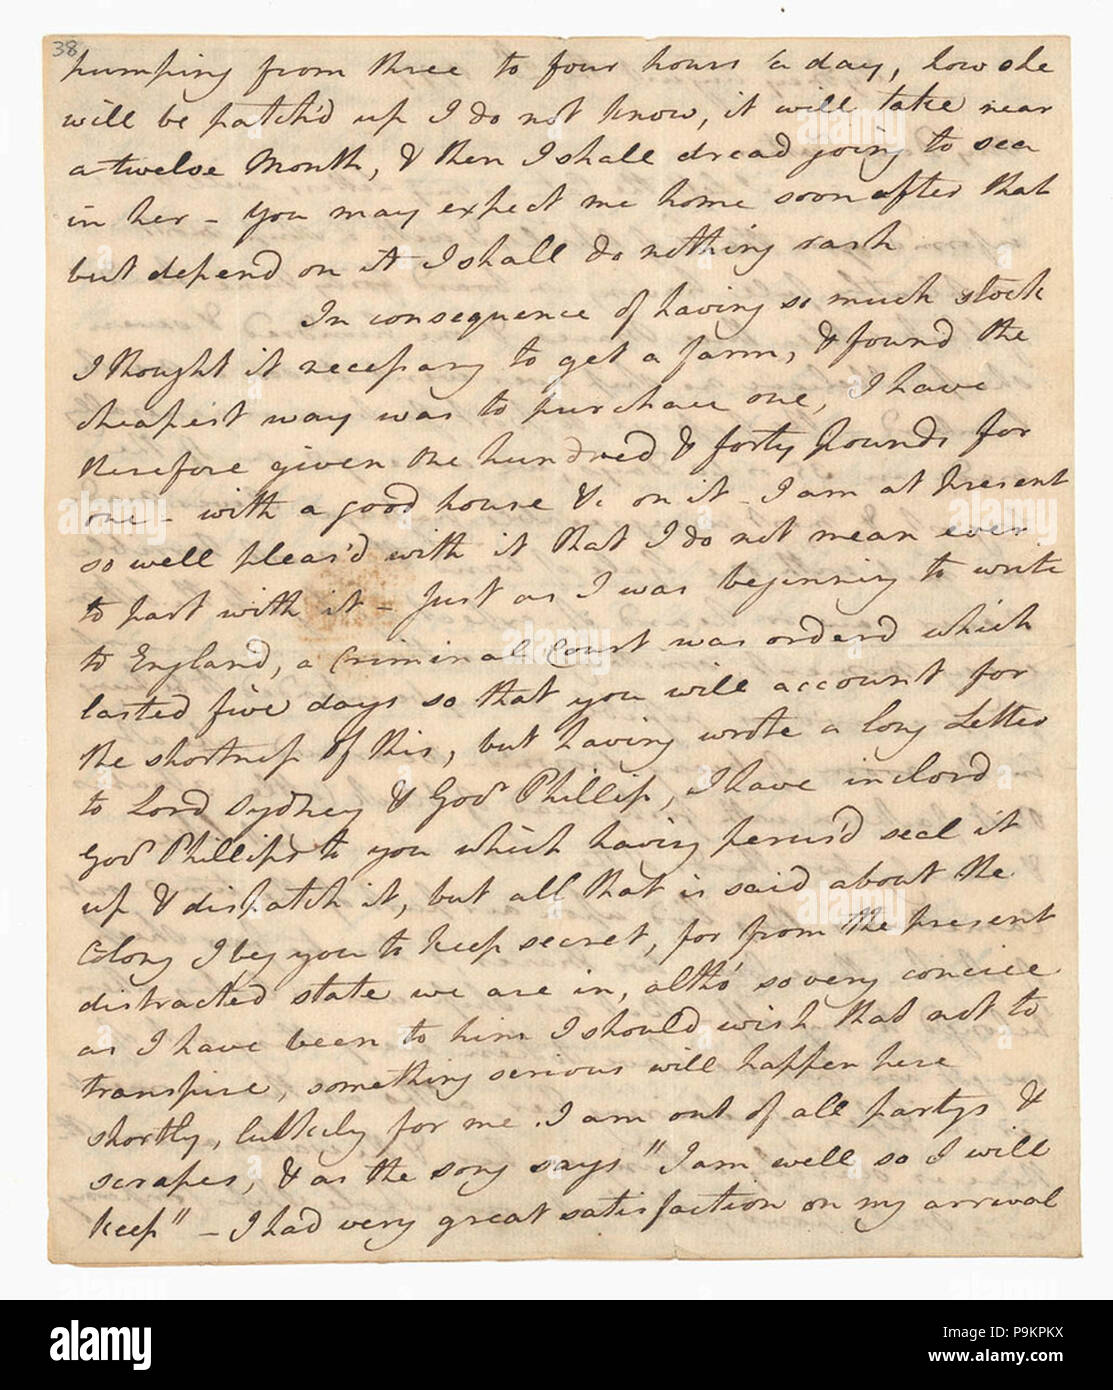 38
pumping from three to four hours a day, how she
will be patch'd up I do not know, it will take near
a twelve Month, & then I shall dread going to sea
in her - You may expect me home soon after that
but depend on it I shall do nothing rash
In consequence of having so much stock
I thought it necessary to get a farm, & found the
cheapest way was to purchace one, I have
therefore given the hundred & forty pounds for
one - with a good house &c on it - I am at Present
so well pleas'd with it that I do not mean ever
to part with it - Just as I was beginning to write
to England, a Criminal Court was orderd which
lasted five days so that you will account for
the shortness of this, but having wrote a long Letter
to Lord Sydney & Govr Phillip, I have inclosd
Govr Phillips to you which having perus'd seal it
up & dispatch it, but all that is said about the
Colony I beg you to keep secret, for from the present
distracted state we are in, altho' so very concise
as I have been to him I should wish that not to
transpire, something serious will happen here
shortly, lukkily for me. I am out of all partys &
scrapes, & as the song says "I am well so I will
keep" - I had very great satisfaction on my arrival
alamy
Image ID: P9KPKX
www.alamy.com